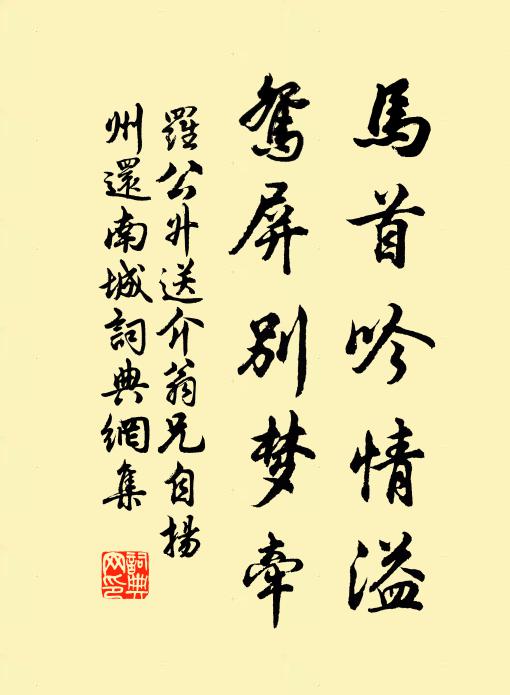 馬首吟情溢
鴛屏别梦牽
羅公升送介翁兄自揚
州還南城詞典網集
詞典
网印